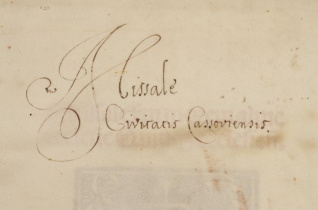 Missale
Civitatis Cassoviensis.